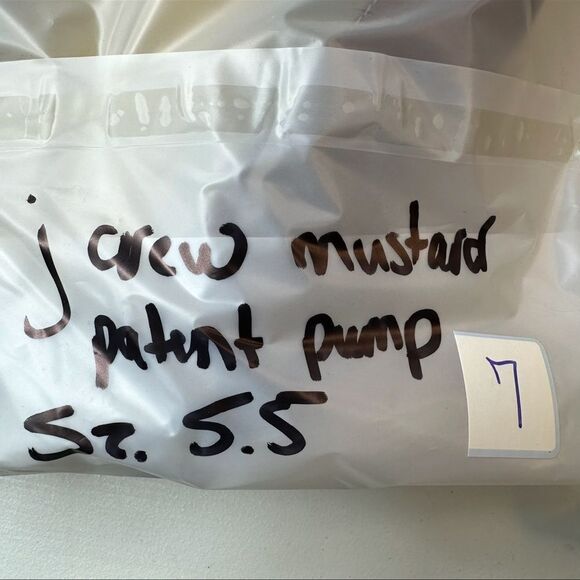 j crew mustard
patent pump
Sz. 5.5
7